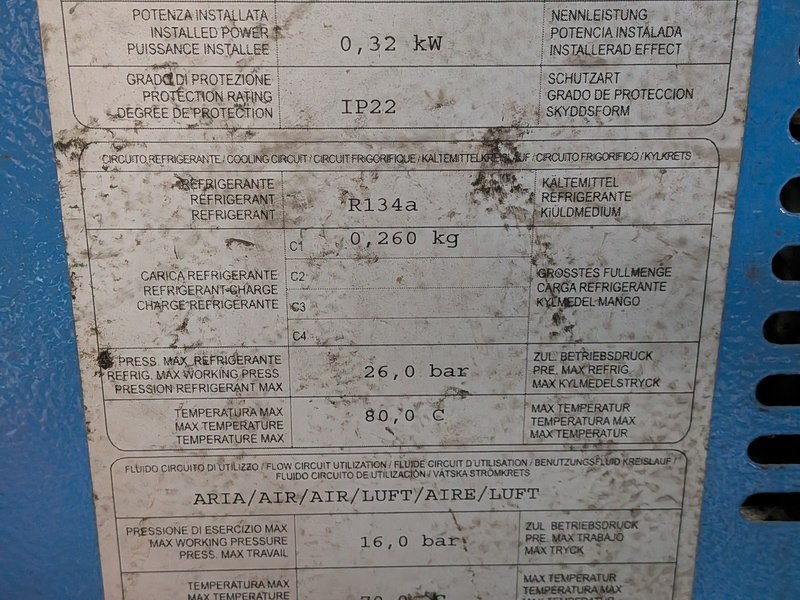 POTENZA INSTALLATA
INSTALLED POWER
PUISSANCE INSTALLEE
0,32 kW
NENNLEISTUNG
POTENCIA INSTALADA
INSTALLERAD EFFECT
GRADO DI PROTEZIONE
PROTECTION RATING
DEGREE DE PROTECTION
IP22
SCHUTZART
GRADO DE PROTECCION
SKYDDSFORM
CIRCUITO REFRIGERANTE / COOLING CIRCUIT / CIRCUIT FRIGORIFIQUE / KALTEMITTELKREISLAUF / CIRCUITO FRIGORIFICO / KYLKRETS
REFRIGERANTE
REFRIGERANT
REFRIGERANT
R134a
KALTEMITTEL
REFRIGERANTE
KIULDMEDIUM
CARICA REFRIGERANTE
REFRIGERANT CHARGE
CHARGE REFRIGERANTE
C1 0,260 kg
C2
C3
C4
GROSSTES FULLMENGE
CARGA REFRIGERANTE
KYLMEDEL MANGO
PRESS. MAX. REFRIGERANTE
REFRIG. MAX WORKING PRESS
PRESSION REFRIGERANT MAX
26,0 bar
ZUL. BETRIEBSDRUCK
PRE. MAX REFRIG.
MAX KYLMEDELSTRYCK
TEMPERATURA MAX
MAX TEMPERATURE
TEMPERATURE MAX
80,0 C
MAX TEMPERATUR
TEMPERATURA MAX
MAX TEMPERATUR
FLUIDO CIRCUITO DI UTILIZZO / FLOW CIRCUIT UTILIZATION / FLUIDE CIRCUIT D'UTILISATION / BENUTZUNGSFLUID KREISLAUF /
FLUIDO CIRCUITO DE UTILIZACIÓN / VÄTSKA STRÖMKRETS
ARIA/AIR/AIR/LUFT/AIRE/LUFT
PRESSIONE DI ESERCIZIO MAX
MAX WORKING PRESSURE
PRESS. MAX TRAVAIL
16,0 bar
ZUL. BETRIEBSDRUCK
PRE. MAX TRABAJO
MAX TRYCK
TEMPERATURA MAX
MAX TEMPERATURE
MAX TEMPERATUR
TEMPERATURA MAX
MAX TEMPERATUR